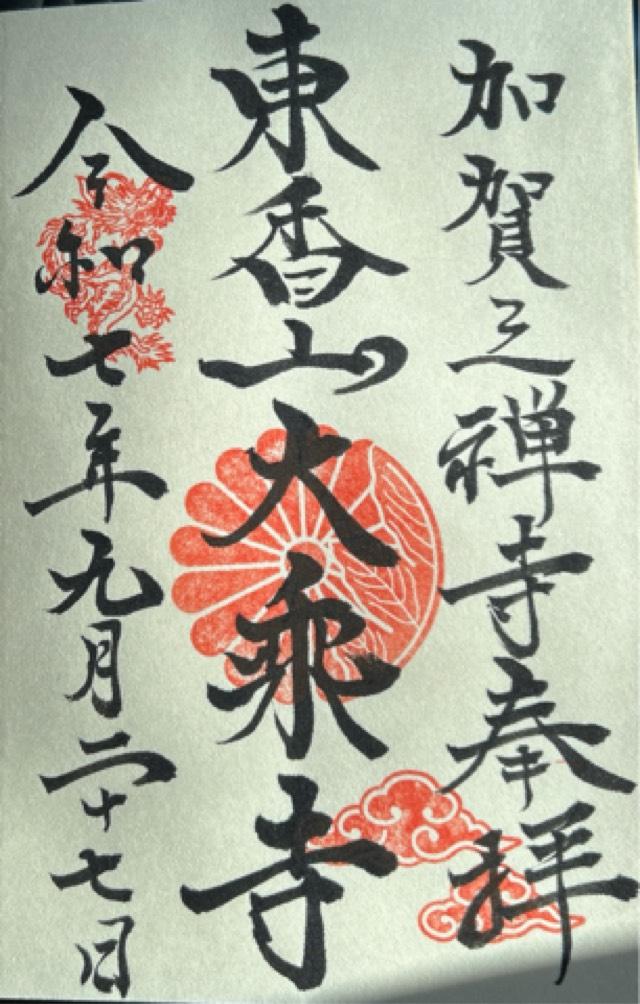 加賀三禅寺奉拝
東香山大乘寺
令和七年九月二十七日